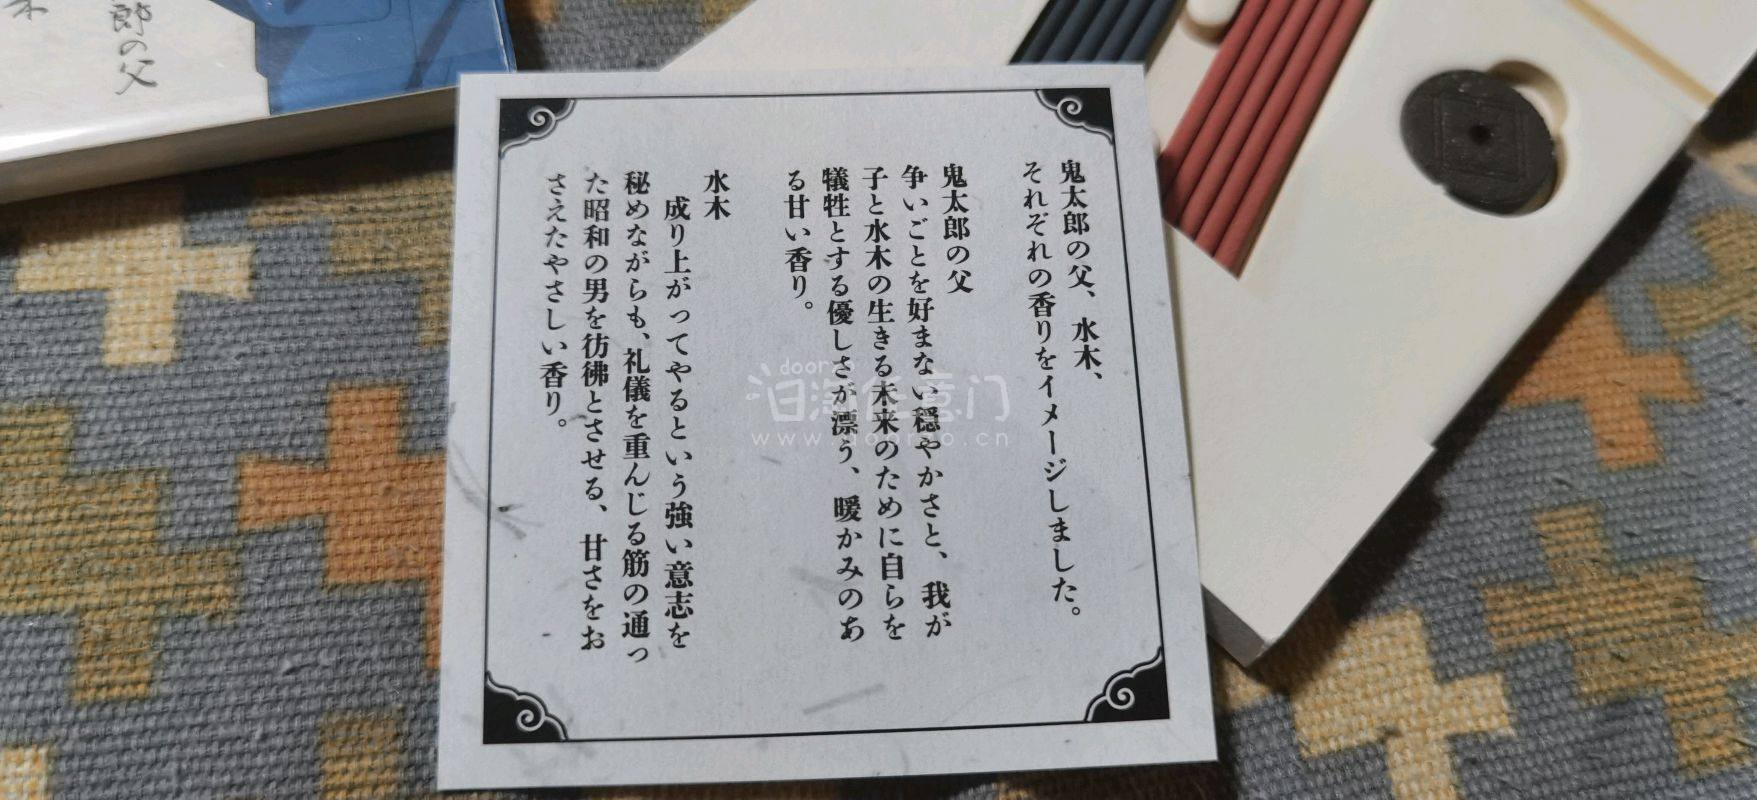 郎の父
木
鬼太郎の父、水木、
それぞれの香りをイメージしました。
鬼太郎の父
争いごとを好まない穏やかさと、我が
子と水木の生きる未来のために自らを
犠牲とする優しさが漂う、暖かみのあ
る甘い香り。
水木
成り上がってやるという強い意志を
秘めながらも、礼儀を重んじる筋の通っ
た昭和の男を彷彿とさせる、甘さをお
さえたやさしい香り。
doorzo
任意门
www.doorzo.cn